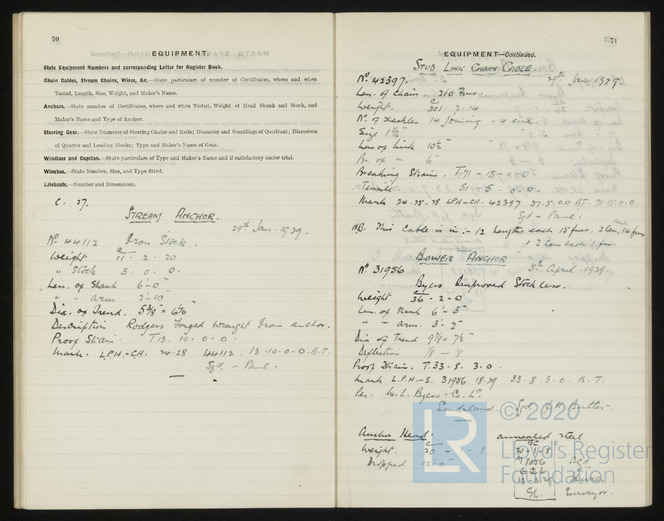 70
EQUIPMENT.
State Equipment Numbers and corresponding Letter for Register Book.
Chain Cables, Stream Chains, Wires, &c.—State particulars of number of Certificates, where and when
Tested, Length, Size, Weight, and Maker's Name.
Anchors.—State number of Certificates, where and when Tested, Weight of Head Shank and Stock, and
Maker's Name and Type of Anchor.
Steering Gear.—State Diameter of Steering Chains and Rods; Diameter and Scantlings of Quadrant; Diameters
of Quarter and Leading Blocks; Type and Maker's Name of Gear.
Windlass and Capstan.—State particulars of Type and Maker's Name and if satisfactory under trial.
Winches.—State Number, Size, and Type fitted.
Lifeboats.—Number and Dimensions.
C. 27.
STREAM ANCHOR.
29th Jan. 1929.
No. 44112 Iron Stock.
Weight 11 . 2 . 20
" Stock 3 . 0 . 0.
Len. of Shank 6'-0"
" - arm 2'-10"
Dia. of Trend. 5⅜ ×
Description Rodgers forged wrought Iron anchor.
Proof Strain. T 13 . 10 . 0 . 0.
Mark. L.P.H.-CH. 24-28 44112. 13.10.0.0.B.T.
Sgd. - Paul.
71
EQUIPMENT—Continued.
STUD LINK CHAIN CABLE.
No. 42397. 29th Jan 1929.
Len. of Chain 210 Fms
Weight. 301 . 2 . 14
No. of Shackles 14 joining.
Size 1
Len of Link 10
Br. of - 6"
Breaking Strain. T.71 - 15 - 0 - 0
Tensile 51 . 5 . 0 . 0.
Mark 24.25.28 LPH-CH. 42397 51.5.0.0 BT. 71.15.0.0.
Sgd - Paul.
NB. This Cable is in :- 12 lengths each 15 fms, 2 len. each 14 fms
& 2 len each 1 fm.
BOWER ANCHOR
No. 31956 8th April - 1929.
Byers Improved Stockless.
Weight 36 - 2 - 0
Len. of Shank 6' - 3"
" - arm. 3' - 2"
Dia of Trend
Deflection
Proof Strain. T. 33 . 8 . 3 . 0 .
Mark L.P.H-S. 31956 18.29 33.8.3.0. B.T.
Per. W. L. Byers & Co. Ld.
Sunderland. Sgd Butler.
Anchor Head: annealed steel
Weight.
Dropped 12'-0"
Surveyor.
© 2020
LR
Lloyd's Register
Foundation